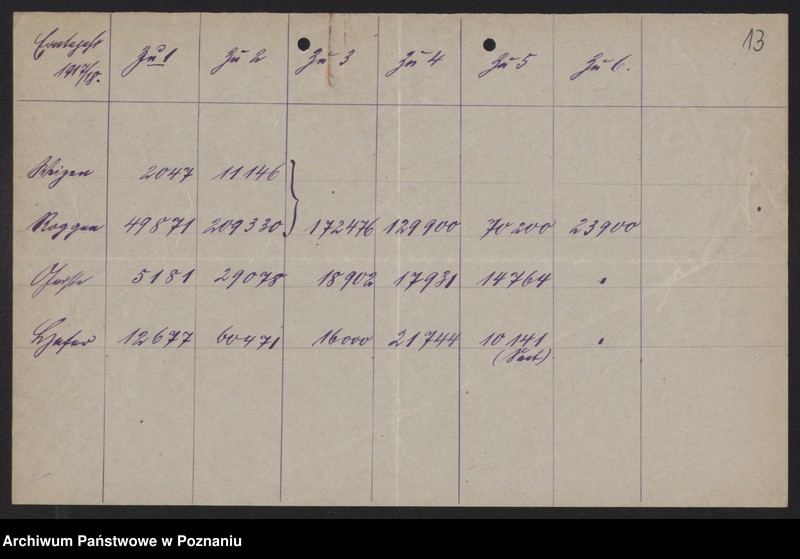 13
Erntejahr 1917/18. Zu 1 Zu 2 Zu 3 Zu 4 Zu 5 Zu 6.
Weizen 2047 11146
Roggen 49871 209330 172476 129900 70200 23900
Gerste 5181 29078 18902 17931 14764 .
Hafer 12677 60471 16000 21744 10141 .
(Saat)
Archiwum Państwowe w Poznaniu